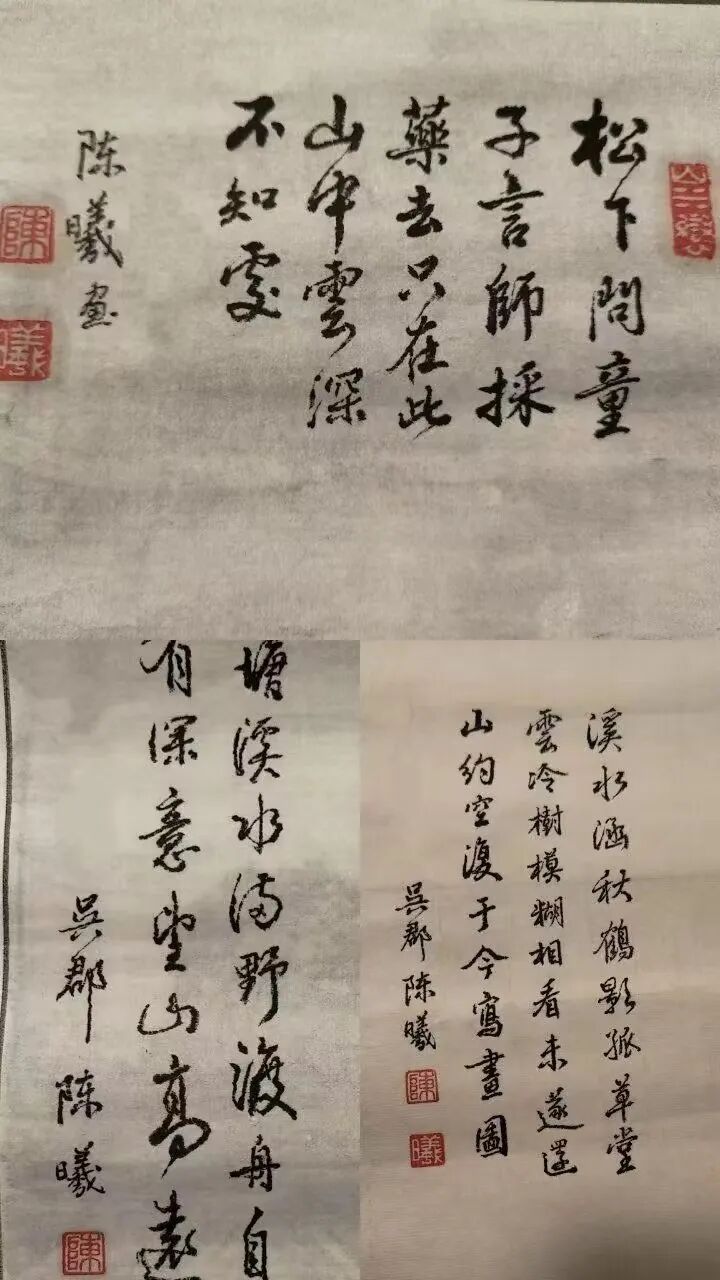 松下問童
子言師採
藥去只在此
山中雲深
不知處
陈曦画
陳
曦
塘溪水满野渡舟自
有深意望山高遠
吳郡陈曦
陳
溪水涵秋鶴影孤草堂
雲冷樹模糊相看未遂還
山約空復于今寫畫圖
吳郡陈曦
陳
曦